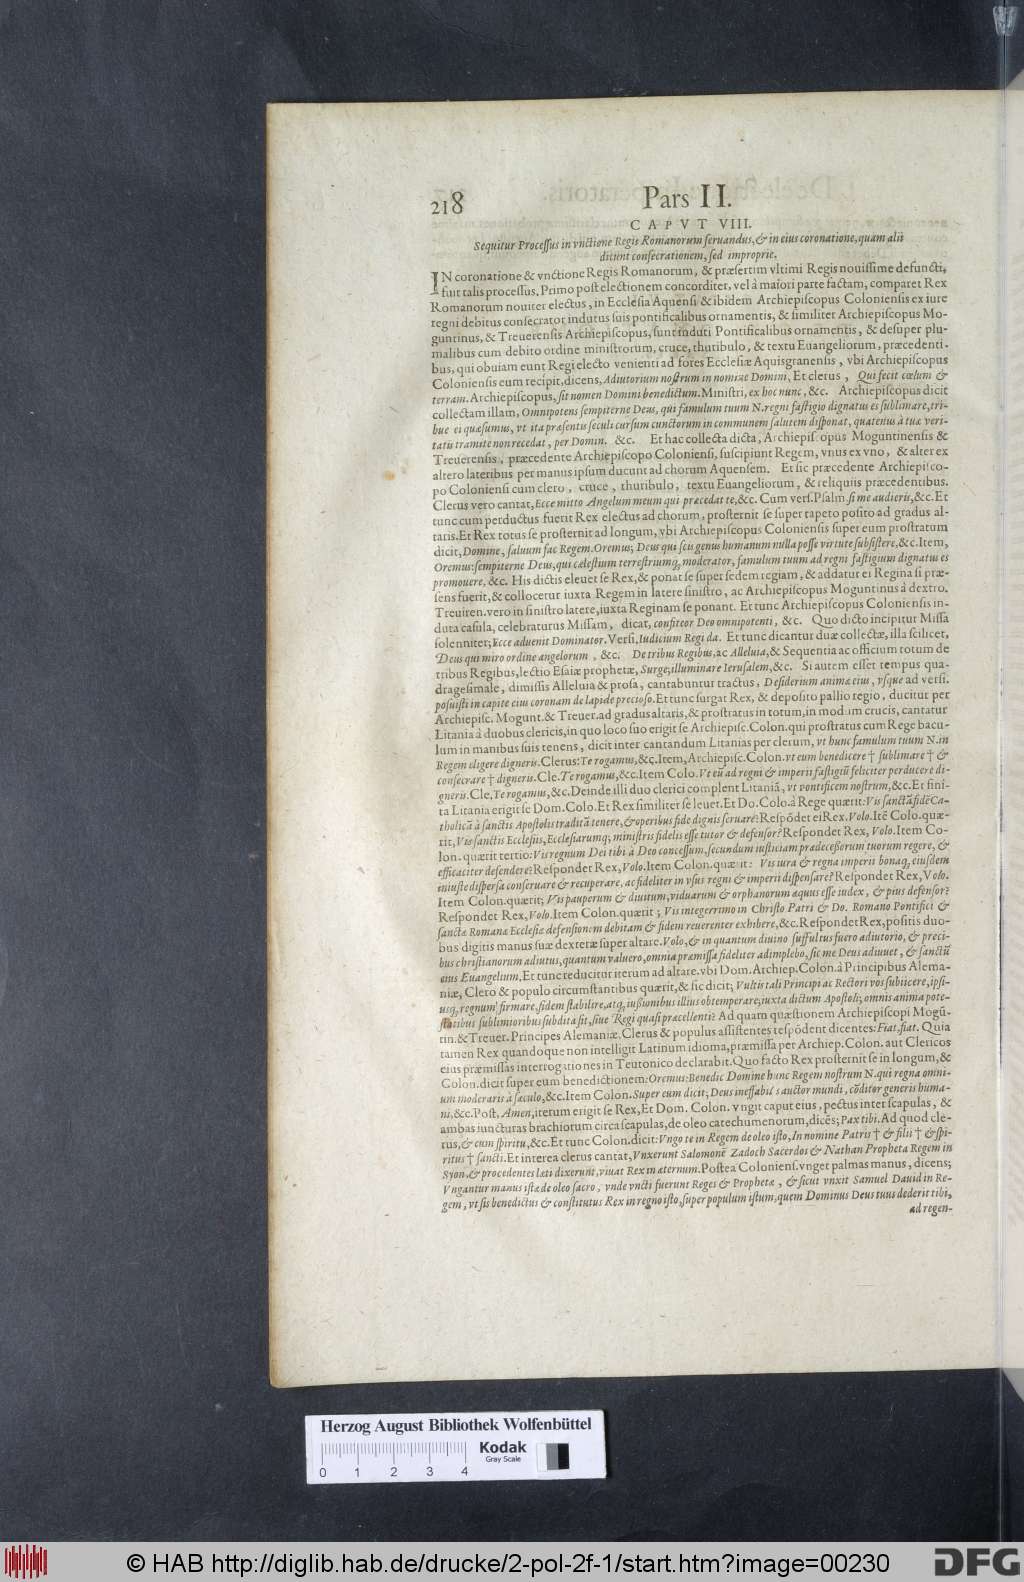 218
Pars II.
CAPVT VIII.
Sequitur Processus in vnctione Regis Romanorum seruandus, & in eius coronatione, quam alii
dicunt consecrationem, sed improprie.
IN coronatione & vnctione Regis Romanorum, & præsertim vltimi Regis nouissime defuncti,
fuit talis processus. Primo post electionem concorditer, vel à maiori parte factam, comparet Rex
Romanorum nouiter electus, in Ecclesia Aquensi & ibidem Archiepiscopus Coloniensis ex iure
regni debitus consecrator indutus suis pontificalibus ornamentis, & similiter Archiepiscopus Mo-
guntinus, & Treuerensis Archiepiscopus, sunt induti Pontificalibus ornamentis, & desuper plu-
malibus cum debito ordine ministrorum, cruce, thuribulo, & textu Euangeliorum, præcedenti-
bus, qui obuiam eunt Regi electo venienti ad fores Ecclesiæ Aquisgranensis, vbi Archiepiscopus
Coloniensis eum recipit, dicens, Adiutorium nostrum in nomine Domini, Et clerus, Qui fecit cœlum &
terram. Archiepiscopus, sit nomen Domini benedictum. Ministri, ex hoc nunc, &c. Archiepiscopus dicit
collectam illam, Omnipotens sempiterne Deus, qui famulum tuum N. regni fastigio dignatus es sublimare, tri-
bue ei quæsumus, vt ita præsentis seculi cursum cunctorum in communem salutem disponat, quatenus à tuæ veri-
tatis tramite non recedat, per Domin. &c. Et hac collecta dicta, Archiepiscopus Moguntinensis &
Treuerensis, præcedente Archiepiscopo Coloniensi, suscipiunt Regem, vnus ex vno, & alter ex
altero lateribus per manus ipsum ducunt ad chorum Aquensem. Et sic præcedente Archiepisco-
po Coloniensi cum clero, cruce, thuribulo, textu Euangeliorum, & reliquiis præcedentibus.
Clerus vero cantat, Ecce mitto Angelum meum qui præcedat te, &c. Cum vers. Psalm. si me audieris, &c. Et
tunc cum perductus fuerit Rex electus ad chorum, prosternit se super tapeto posito ad gradus al-
taris. Et Rex totus se prosternit ad longum, vbi Archiepiscopus Coloniensis super eum prostratum
dicit, Domine, saluum fac Regem. Oremus; Deus qui scis genus humanum nulla posse virtute subsistere, &c. Item,
Oremus: sempiterne Deus, qui cælestium terrestriumq; moderator, famulum tuum ad regni fastigium dignatus es
promouere, &c. His dictis eleuet se Rex, & ponat se super sedem regiam, & addatur ei Regina si præ-
sens fuerit, & collocetur iuxta Regem in latere sinistro, ac Archiepiscopus Moguntinus à dextro.
Treuiren. vero in sinistro latere, iuxta Reginam se ponant. Et tunc Archiepiscopus Coloniensis in-
duta casula, celebraturus Missam, dicat, confiteor Deo omnipotenti, &c. Quo dicto incipitur Missa
solenniter; Ecce aduenit Dominator. Versi, Iudicium Regi da. Et tunc dicantur duæ collectæ, illa scilicet,
Deus qui miro ordine angelorum, &c. De tribus Regibus, ac Alleluia, & Sequentia ac officium totum de
tribus Regibus, lectio Esaiæ prophetæ, Surge; illuminare Ierusalem, &c. Si autem esset tempus qua-
dragesimale, dimissis Alleluia & prosa, cantabuntur tractus, Desiderium animæ eius, vsque ad versi.
posuisti in capite eius coronam de lapide precioso. Et tunc surgat Rex, & deposito pallio regio, ducitur per
Archiepisc. Mogunt. & Treuer. ad gradus altaris, & prostratus in totum, in modum crucis, cantatur
Litania à duobus clericis, in quo loco suo erigit se Archiepisc. Colon. qui prostratus cum Rege bacu-
lum in manibus suis tenens, dicit inter cantandum Litanias per clerum, vt hunc famulum tuum N. in
Regem eligere digneris. Clerus: Te rogamus, &c. Item, Archiepisc. Colon. vt eum benedicere † sublimare † &
consecrare † digneris. Cle. Te rogamus, &c. Item Colo. Vt eū ad regni & imperii fastigiū feliciter perducere di-
gneris. Cle, Te rogamus, &c. Deinde illi duo clerici complent Litaniā, vt pontificem nostrum, &c. Et fini-
ta Litania erigit se Dom. Colo. Et Rex similiter se leuet. Et Do. Colo. à Rege quærit: Vis sanctā fidē Ca-
tholicā à sanctis Apostolis traditā tenere, & operibus fide dignis seruare? Respōdet ei Rex. Volo. Itē Colo. quæ-
rit, Vis sanctis Ecclesiis, Ecclesiarumq; ministris fidelis esse tutor & defensor? Respondet Rex, Volo. Item Co-
lon. quærit tertio: Vis regnum Dei tibi à Deo concessum, secundum iusticiam prædecessorum tuorum regere, &
efficaciter defendere? Respondet Rex, Volo. Item Colon. quærit: Vis iura & regna imperii bonaq; eiusdem
iniuste dispersa conseruare & recuperare, ac fideliter in vsus regni & imperii dispensare? Respondet Rex, Volo.
Item Colon. quærit; Vis pauperum & diuitum, viduarum & orphanorum æquus esse iudex, & pius defensor?
Respondet Rex, Volo. Item Colon. quærit; Vis integerrimo in Christo Patri & Do. Romano Pontifici &
sanctæ Romanæ Ecclesiæ defensionem debitam & fidem reuerenter exhibere, &c. Respondet Rex, positis duo-
bus digitis manus suæ dexteræ super altare. Volo, & in quantum diuino suffultus fuero adiutorio, & preci-
bus christianorum adiutus, quantum valuero, omnia præmissa fideliter adimplebo, sic me Deus adiuuet, & sanctū
eius Euangelium. Et tunc reducitur iterum ad altare. vbi Dom. Archiep. Colon. à Principibus Alema-
niæ, Clero & populo circumstantibus quærit, & sic dicit; Vultis tali Principi ac Rectori vos subiicere, ipsi-
usq; regnum firmare, fidem stabilire, atq; iussionibus illius obtemperare; iuxta dictum Apostoli; omnis anima pote-
statibus sublimioribus subdita sit, siue Regi quasi præcellenti? Ad quam quæstionem Archiepiscopi Mogū-
tin. & Treuer. Principes Alemaniæ. Clerus & populus assistentes respōdent dicentes: Fiat, fiat. Quia
tamen Rex quandoque non intelligit Latinum idioma, præmissa per Archiep. Colon. aut Clericos
eius præmissas interrogationes in Teutonico declarabit. Quo facto Rex prosternit se in longum, &
Colon. dicit super eum benedictionem: Oremus: Benedic Domine hunc Regem nostrum N. qui regna omni-
um moderaris à sæculo, &c. Item Colon. Super eum dicit; Deus ineffabilis auctor mundi, cōditor generis huma-
ni, &c. Post, Amen, iterum erigit se Rex, Et Dom. Colon. vngit caput eius, pectus inter scapulas, &
ambas iuncturas brachiorum circa scapulas, de oleo catechumenorum, dicēs; Pax tibi. Ad quod cle-
rus, & cum spiritu, &c. Et tunc Colon. dicit: Vngo te in Regem de oleo isto, In nomine Patris † & filii † & spi-
ritus † sancti. Et interea clerus cantat, Vnxerunt Salomonē Zadoch Sacerdos & Nathan Propheta Regem in
Syon, & procedentes læti dixerunt, viuat Rex in æternum. Postea Coloniens. vnget palmas manus, dicens;
Vngantur manus istæ de oleo sacro, vnde vncti fuerunt Reges & Prophetæ, & sicut vnxit Samuel Dauid in Re-
gem, vt sis benedictus & constitutus Rex in regno isto, super populum istum, quem Dominus Deus tuus dederit tibi,
ad regen-
Herzog August Bibliothek Wolfenbüttel
0 1 2 3 4
Kodak
Gray Scale
© HAB http://diglib.hab.de/drucke/2-pol-2f-1/start.htm?image=00230
DFG